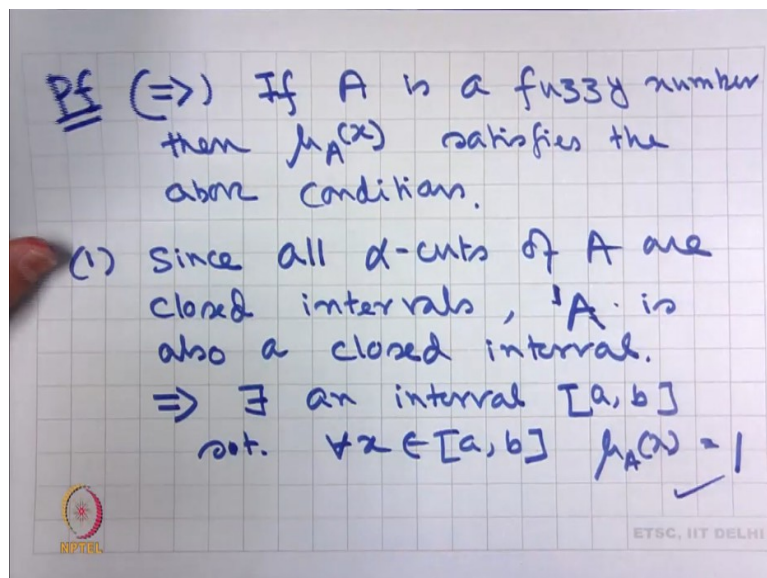 Pf (=>) If A is a fuzzy number
then μ_A(x) satisfies the
above conditions.
(1) Since all α-cuts of A are
closed intervals, ¹A is
also a closed interval.
=> ∃ an interval [a, b]
s.t. ∀x ∈ [a, b] μ_A(x) = 1
NPTEL
ETSC, IIT DELHI